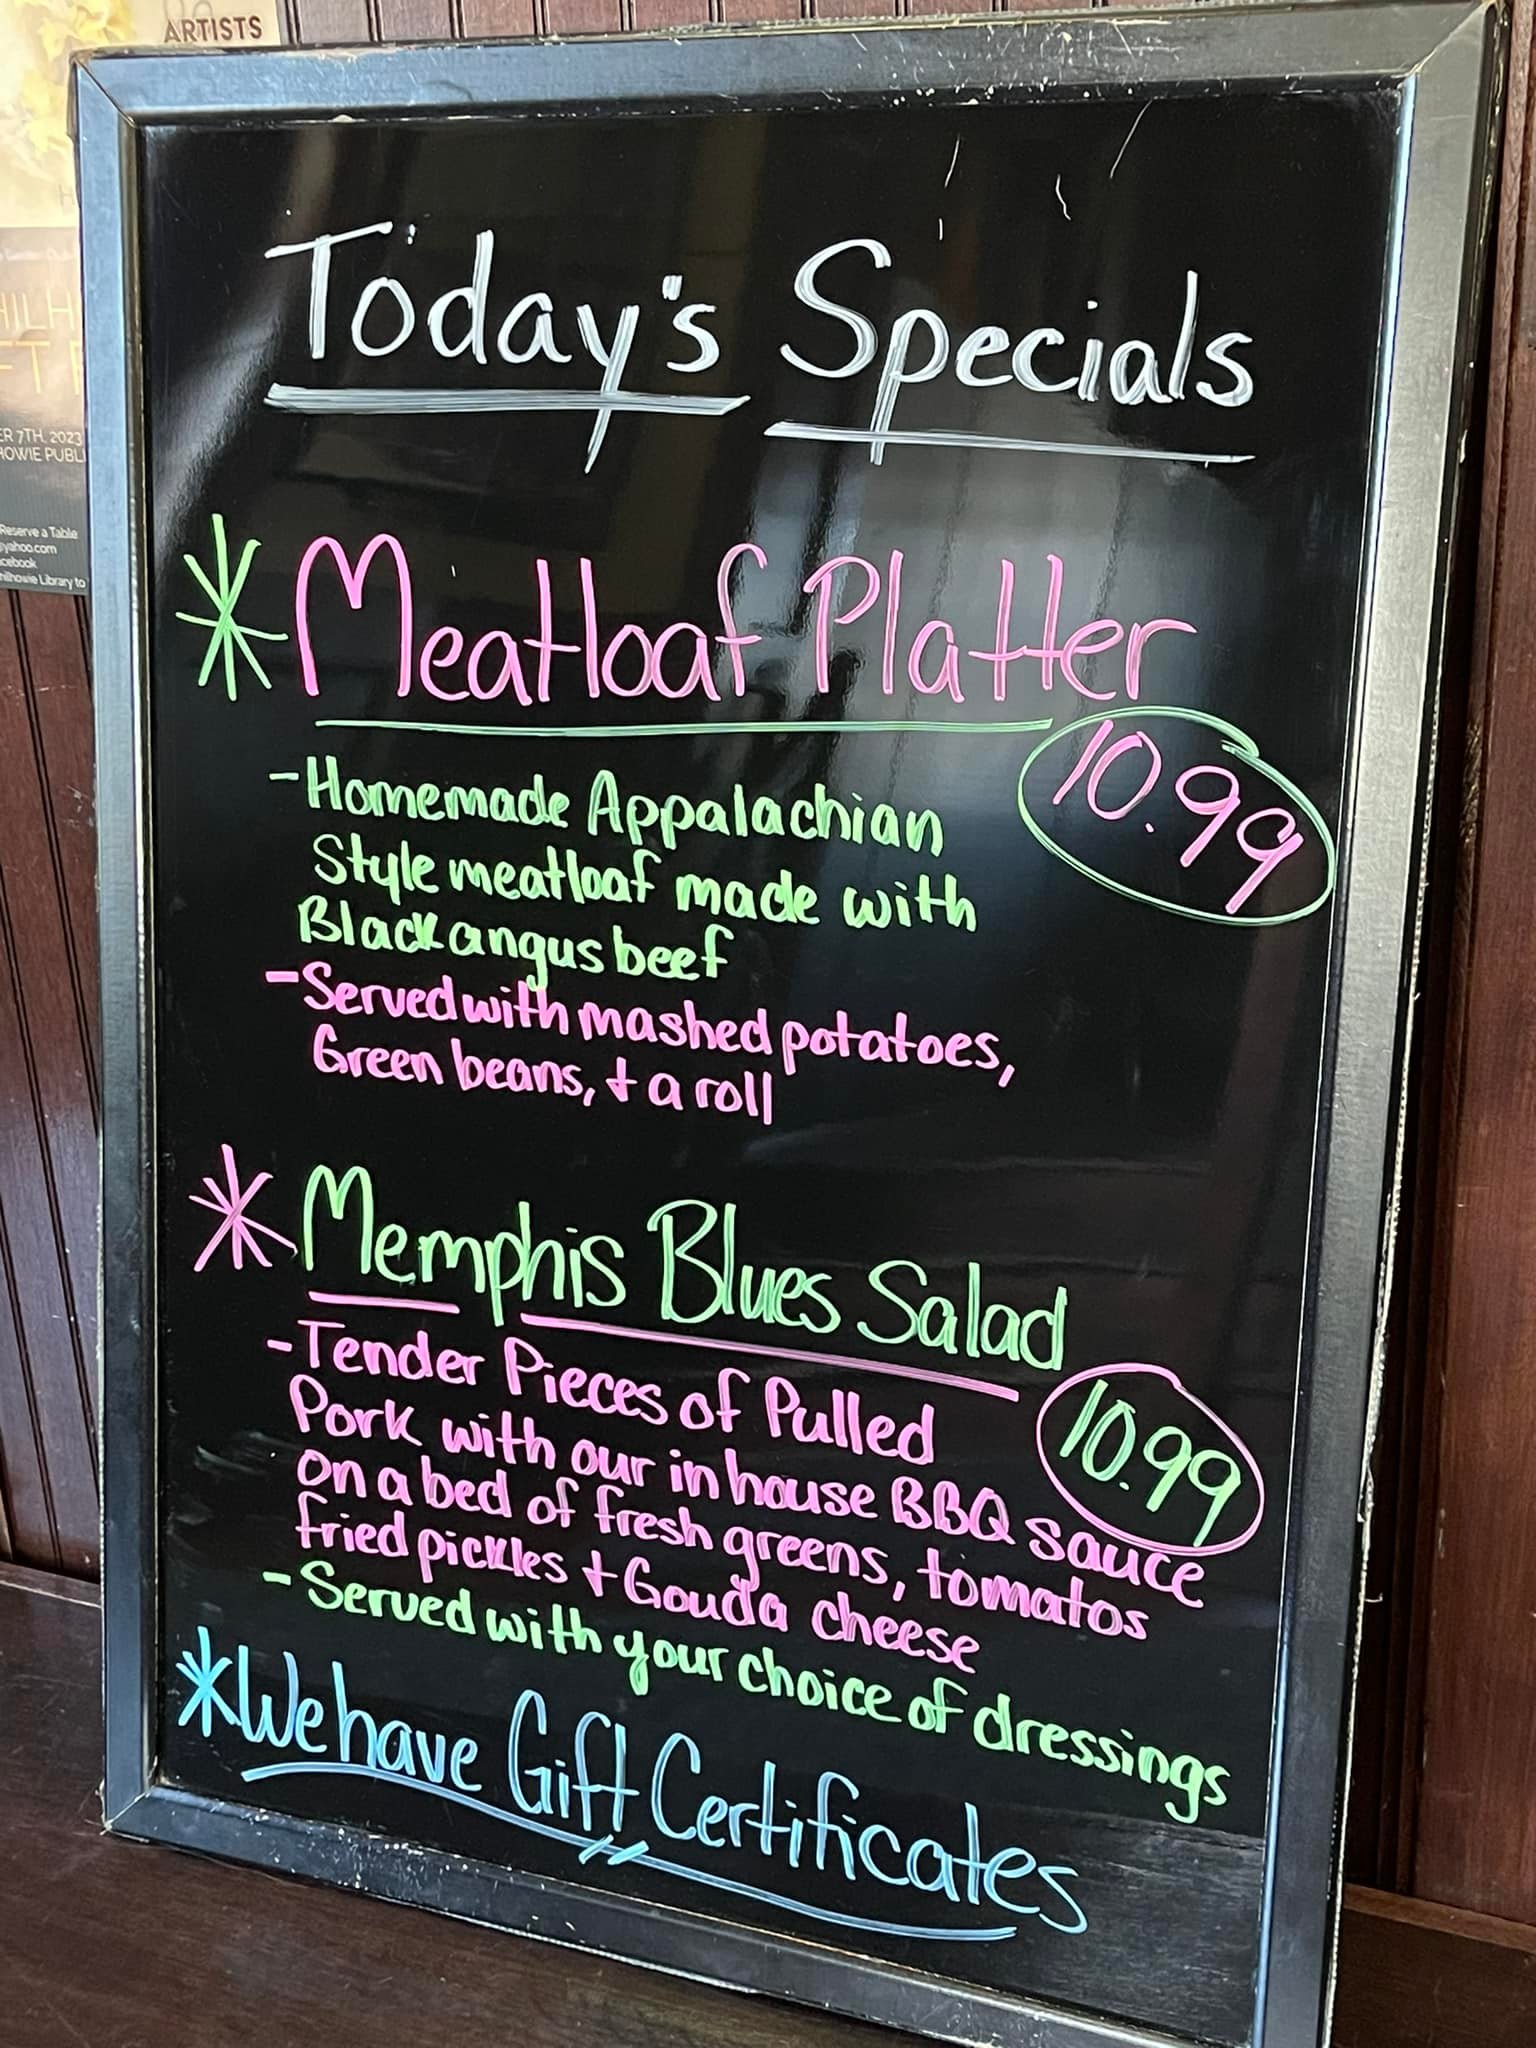 ARTISTS
ER 7TH, 2023
Reserve a Table
yahoo.com
Library to
Today's Specials
* Meatloaf Platter
10.99
- Homemade Appalachian
Style meatloaf made with
Black angus beef
- Served with mashed potatoes,
Green beans, + a roll
* Memphis Blues Salad
10.99
- Tender Pieces of Pulled
Pork with our in house BBQ sauce
on a bed of fresh greens, tomatos
fried pickles + Gouda cheese
- Served with your choice of dressings
* We have Gift Certificates